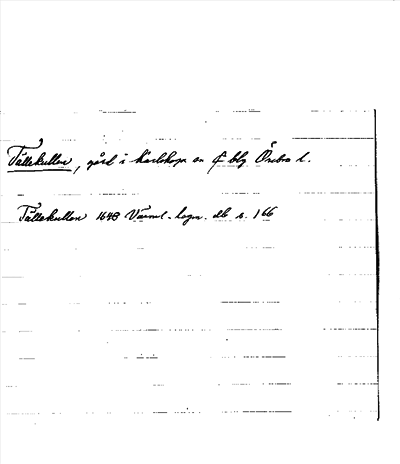 Tällekullen, gård i Karlskoga sn ₵ blg Örebro l.
Tällekullen 1648 Värml. lagm. db s. 166